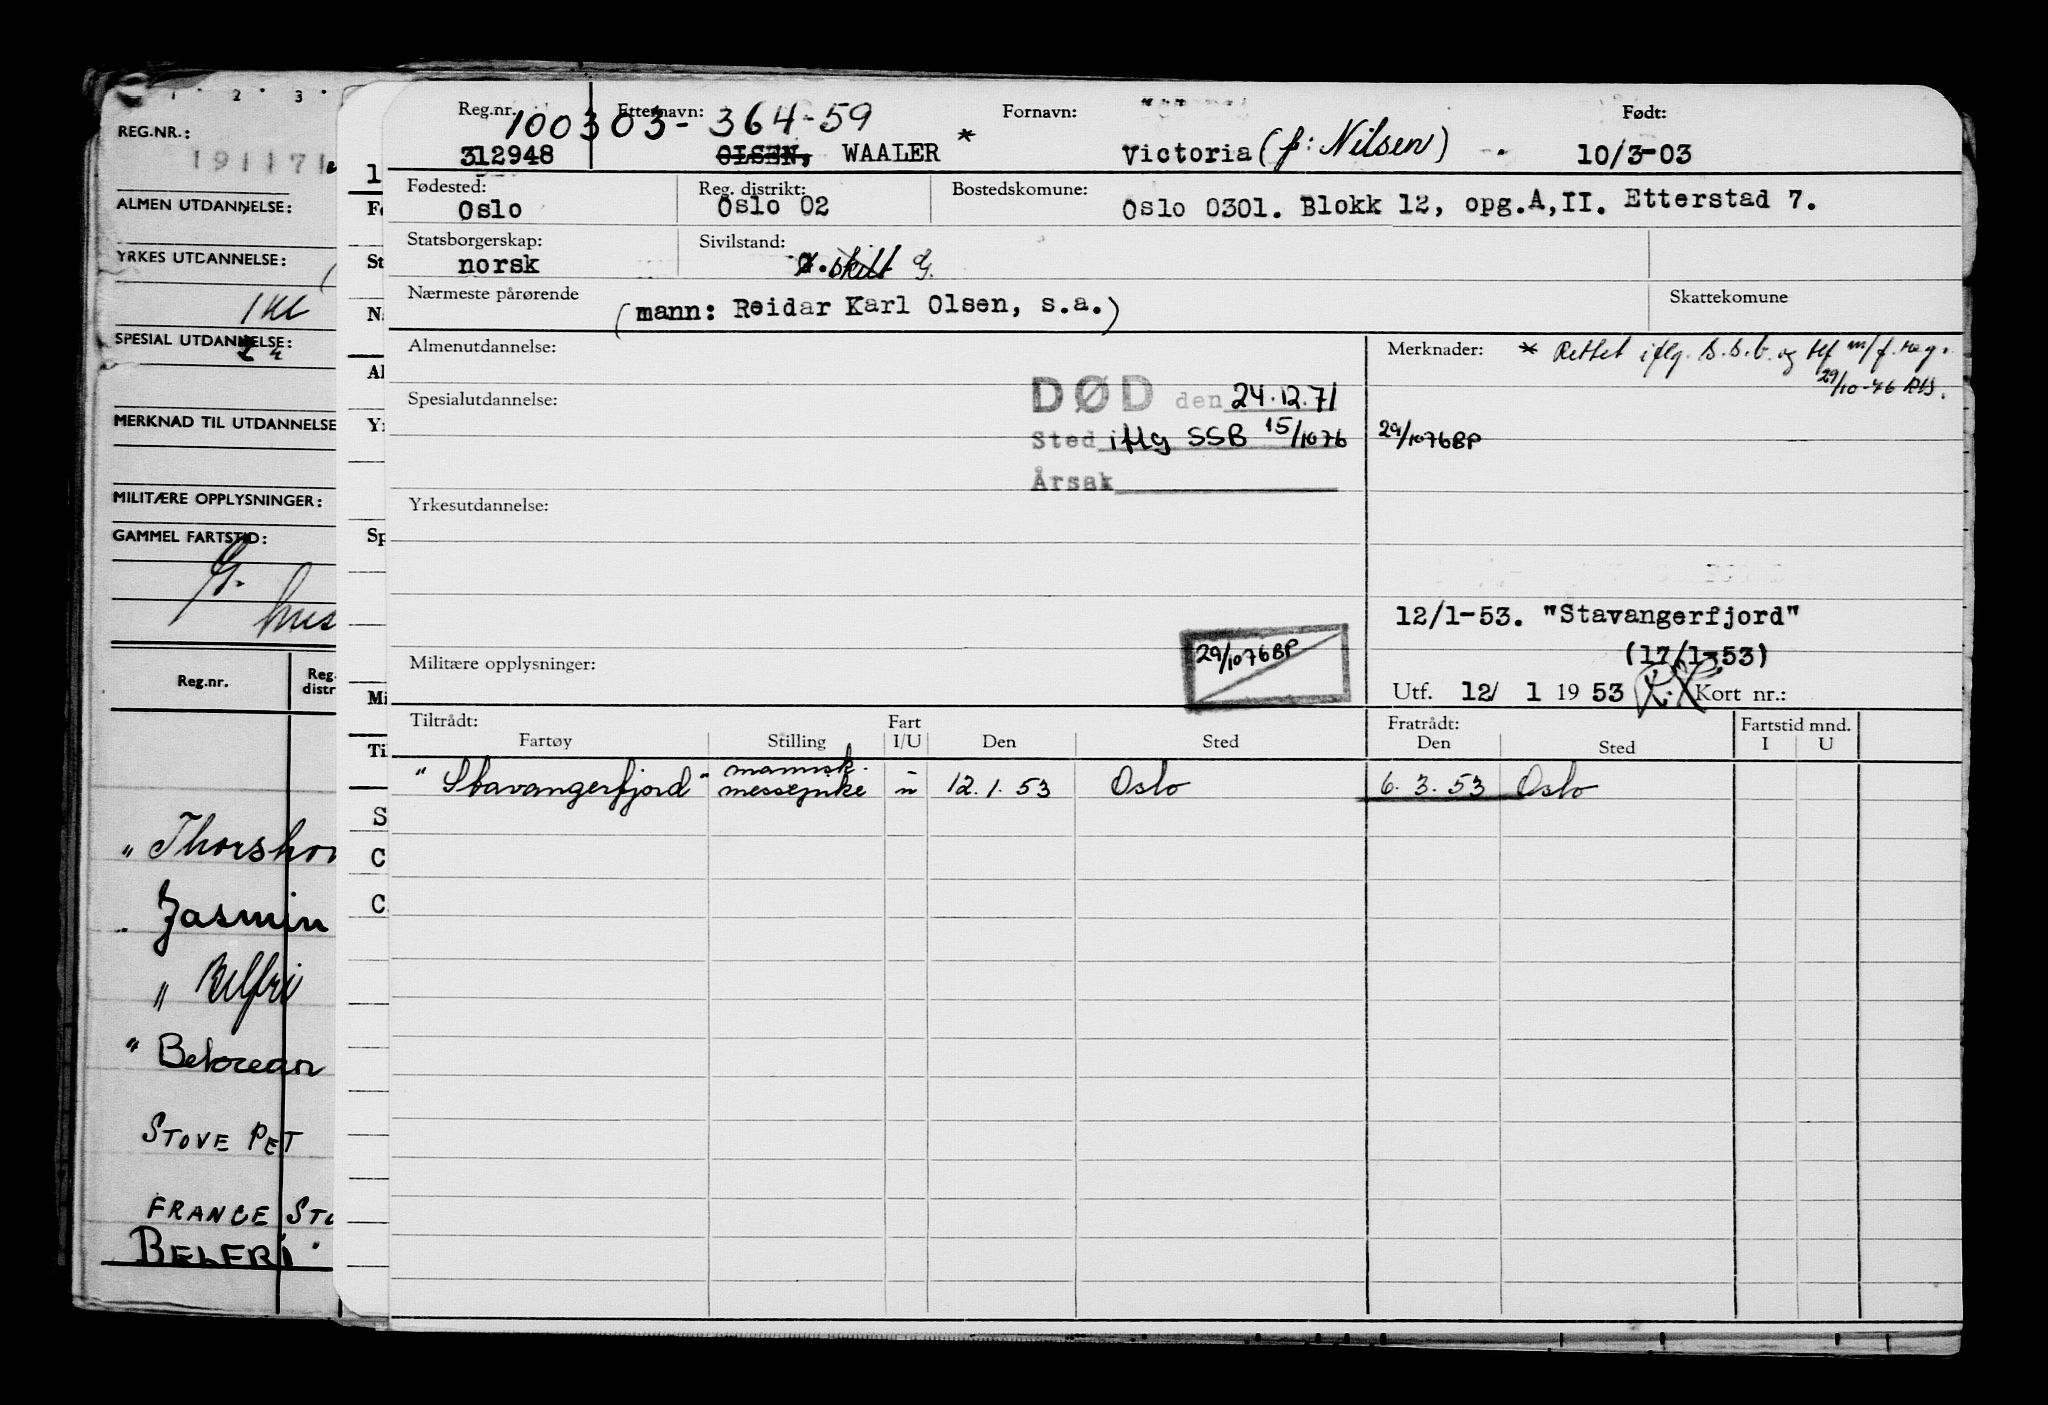 1 · 2 · 3 ·
REG.NR.:
191171
ALMEN UTDANNELSE:
YRKES UTDANNELSE:
1 Kl
SPECIAL UTDANNELSE:
MERKNAD TIL UTDANNELSE
MILITÆRE OPPLYSNINGER:
GAMMEL FARTSTID:
G.
Reg.nr. Reg. distr
" Thorshov
Jasmin
" Belfri
" Belocean
STOVE PET
FRANCE STO
BELFRI "
1
Fø
St
N
Al
Y
Sp
Mi
Ti
S
C
C
Reg.nr. Etternavn: Fornavn: Født:
100303-364-59
312948 OLSEN, WAALER * Victoria (f: Nilsen) 10/3-03
Fødested: Reg. distrikt: Bostedskomune:
Oslo Oslo 02 Oslo 0301. Blokk 12, opg.A,II. Etterstad 7.
Statsborgerskap: Sivilstand:
norsk skilt G.
Nærmeste pårørende Skattekomune
(mann: Reidar Karl Olsen, s.a.)
Almenutdannelse: Merknader: * Rettet iflg. S.S.b. og tlf m/f. reg.
29/10-76
DØD den 24.12.71
Spesialutdannelse:
Sted iflg SSB 15/10 76 29/10 76 BP
Årsak
Yrkesutdannelse:
12/1-53. "Stavangerfjord"
(17/1-53)
29/10 76 BP
Militære opplysninger:
Utf. 12/ 1 19 53 Kort nr.:
Tiltrådt: Fart Fratrådt: Fartstid mnd.
Fartøy Stilling I/U Den Sted Den Sted I U
"Stavangerfjord" mannsk. messepike u 12.1.53 Oslo 6.3.53 Oslo